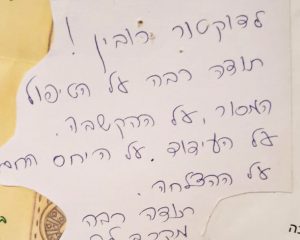 לדוקטור רובין !
תודה רבה על הטיפול
המסור, על ההקשבה.
על העידוד. על היחס החם
על ההצלחה.
תודה רבה